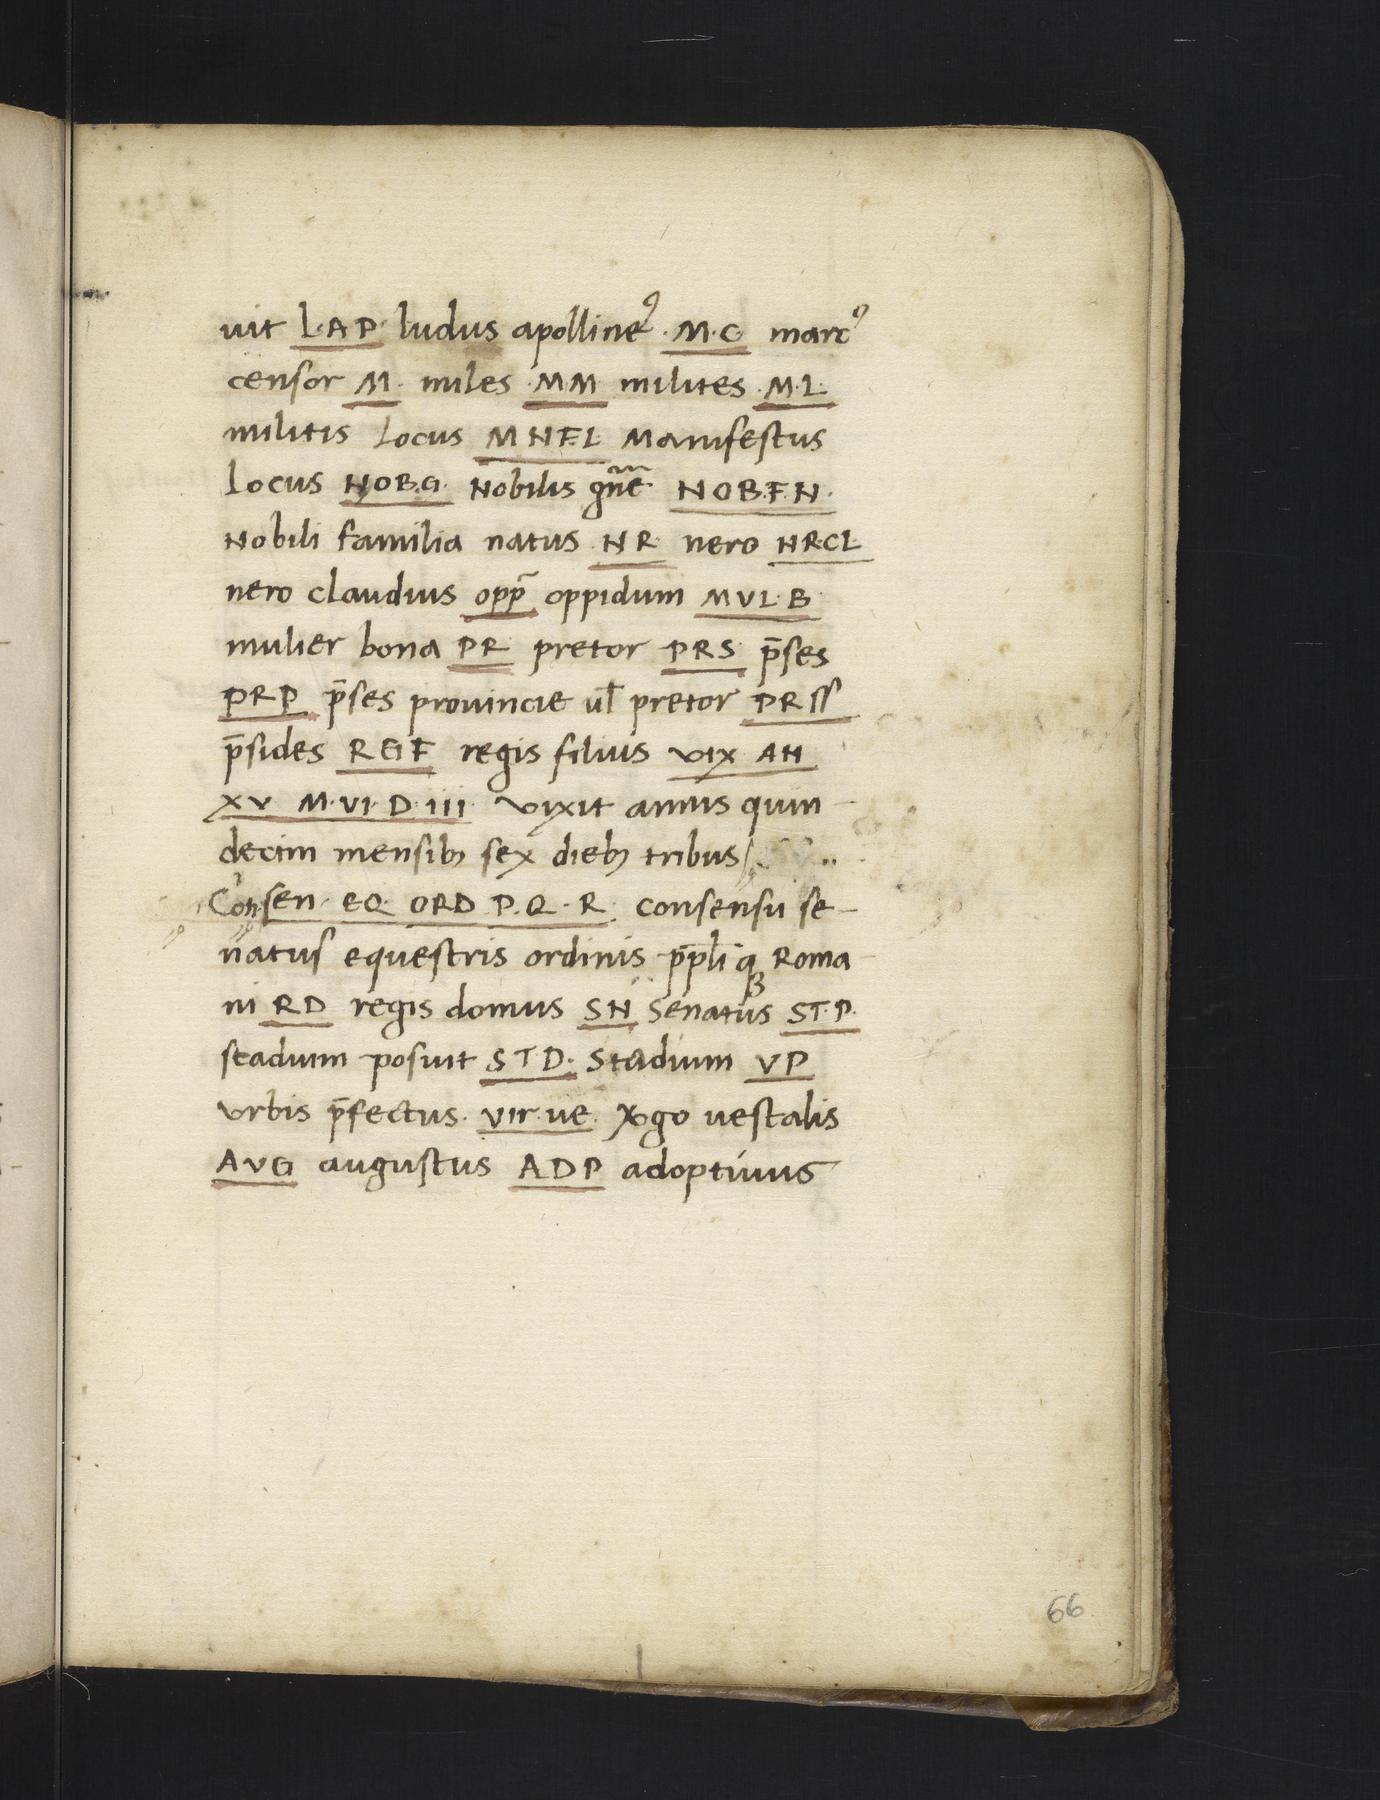 uit L·AP· ludus apollineꝰ ·M·C· marcꝰ
censor M· miles ·MM· milites ·M·L·
militis locus MNF.L Manifestus
locus NOB.G· Nobilis gn̄e NOB.F.N·
Nobili familia natus ·NR· nero NR·CL
nero claudius opp̄ oppidum MVL·B·
mulier bona PR· pretor PRS· p̄ses
PRP p̄ses prouincie ul̄ pretor PRSS
p̄sides REGF regis filius VIX AN
XV M·VI·D·III· vixit annis quin-
decim mensibꝫ sex diebꝫ tribus
Consen· EQ· ORD P.Q·R· consensu se-
natus equestris ordinis pp̄li q̄ꝫ Roma-
ni RD regis domus SN Senatus ST·P·
stadium posuit STD· Stadium VP
Vrbis p̄fectus· vir·ve· Vgo vestalis
AVG augustus ADP adoptiuus
66